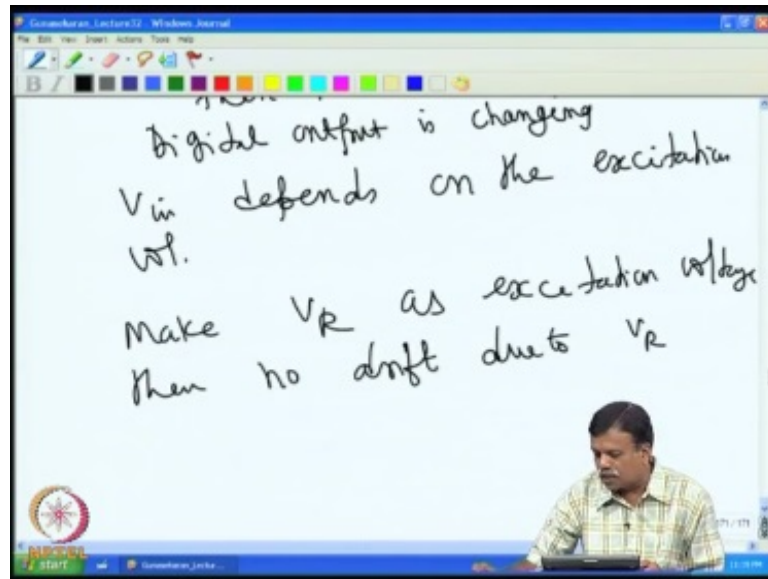 Gunasekaran_Lecture32 - Windows Journal
File Edit View Insert Actions Tools Help
B I
Digital ontput is changeing
Vin depends on the excitation
vol.
Make VR as excetation voltage
then no drift due to VR
171 / 171
NPTEL
start
Gunasekaran_Lectu...